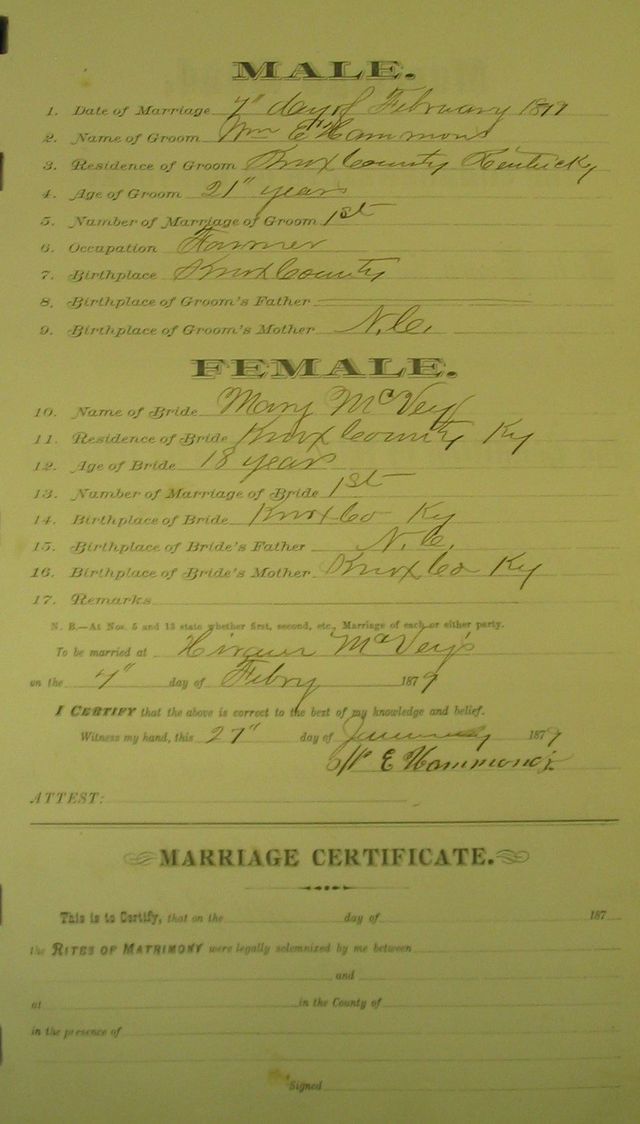 MALE.
1. Date of Marriage 7" day of February 1879
2. Name of Groom Wm E Hammons
3. Residence of Groom Knox County Kentucky
4. Age of Groom 21" years
5. Number of Marriage of Groom 1st
6. Occupation Farmer
7. Birthplace Knox County
8. Birthplace of Groom's Father
9. Birthplace of Groom's Mother N.C.
FEMALE.
10. Name of Bride Mary McVey
11. Residence of Bride Knox County Ky
12. Age of Bride 18 years
13. Number of Marriage of Bride 1st
14. Birthplace of Bride Knox Co Ky
15. Birthplace of Bride's Father N.C.
16. Birthplace of Bride's Mother Knox Co Ky
17. Remarks
N. B.—At Nos. 5 and 13 state whether first, second, etc., Marriage of each or either party.
To be married at Hiram McVey's
on the 7" day of Febry 1879
I CERTIFY that the above is correct to the best of my knowledge and belief.
Witness my hand, this 27" day of January 1879
W E Hammons
ATTEST:
MARRIAGE CERTIFICATE.
This is to Certify, that on the day of 187
the RITES OF MATRIMONY were legally solemnized by me between
and
at in the County of
in the presence of
Signed